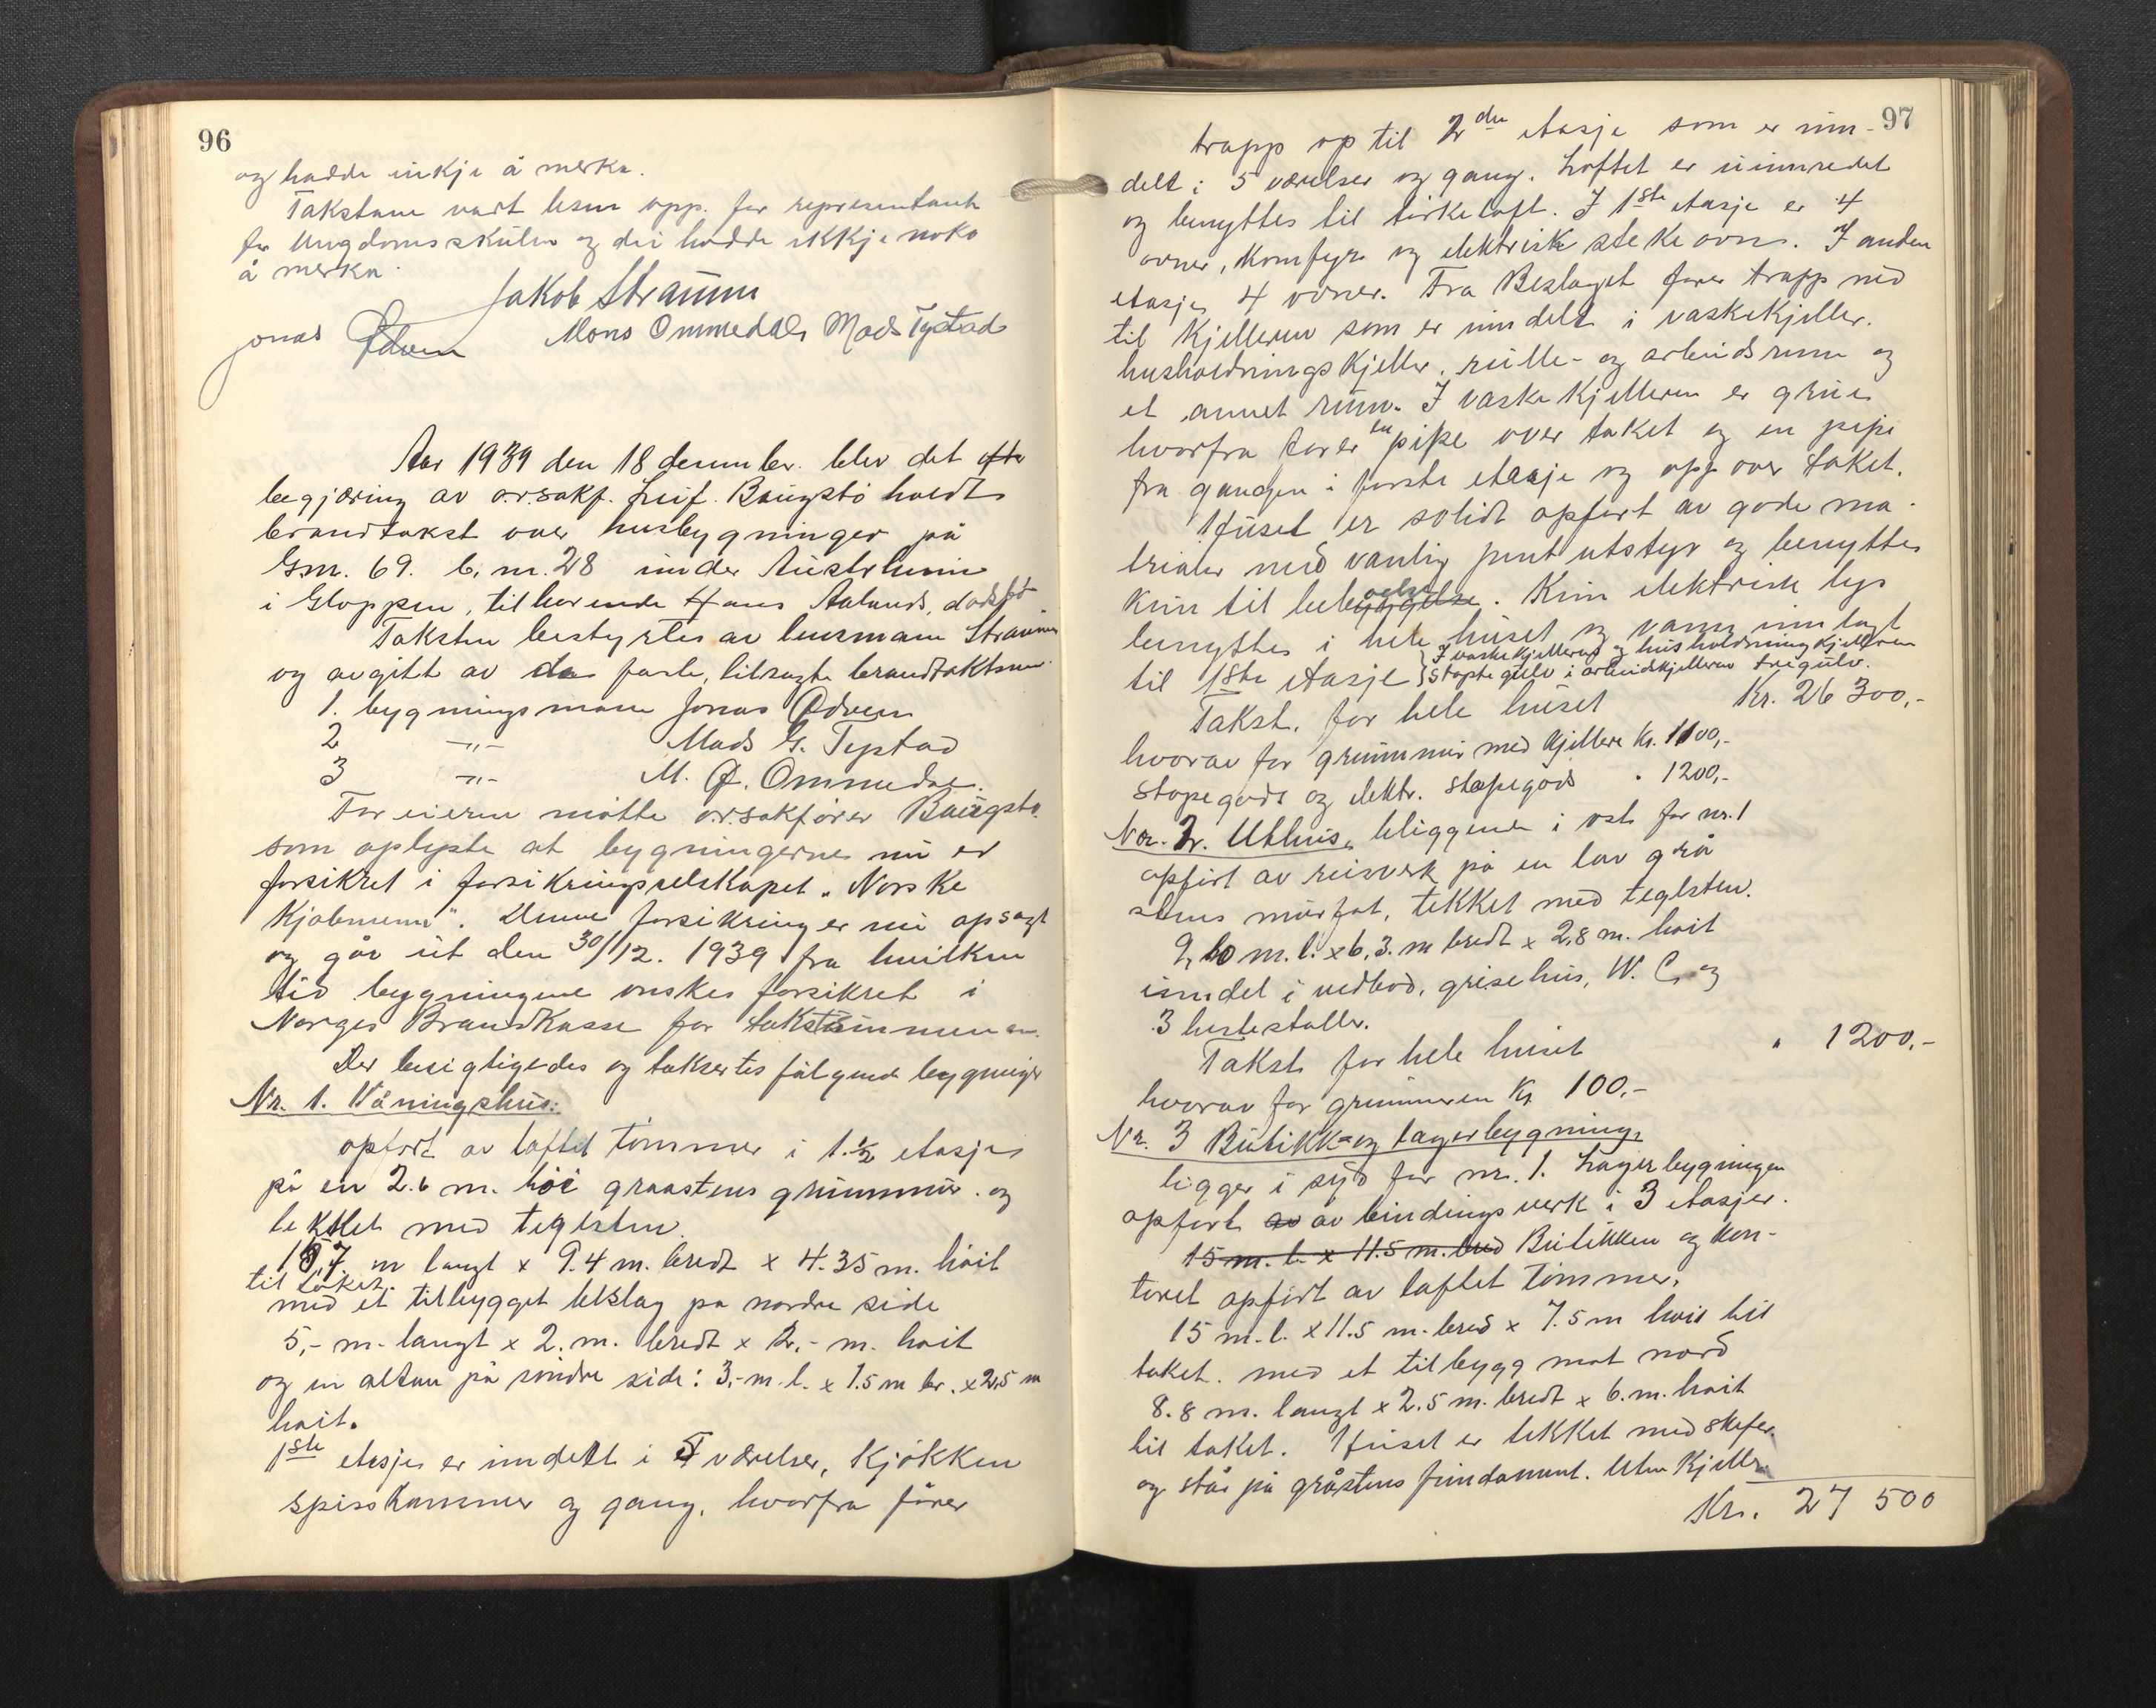 96
og hadde inkje å merka.
Takstane vart lesne opp for representant
for Ungdomsskulen og dei hadde ikkje noko
å merka.
Jakob Straume
Jonas Ødven Mons Ommedal Mads Tystad
Aar 1939 den 18 desember blev det efter
begjæring av o.r.sakf. Leif Baugstø holdt
brandtakst over husbygninger på
Gnr. 69. b.nr. 28 under Austrheim
i Gloppen, tilhørende Hans Aalands, dødsbo
Taksten bestyrtes av lensmann Straume
og avgitt av de faste, tilsagte brandtakstmenn
1. bygningsmann Jonas Ødven
2 -"- Mads G. Tystad
3 -"- M. Ø. Ommedal.
For eieren møtte o.r.sakfører Baugstø
som oplyste at bygningerne nu er
forsikret i forsikringsselskapet „Norske
Kjøbmenn". Denne forsikring er nu opsagt
og går ut den 30/12. 1939 fra hvilken
tid bygningene ønskes forsikret i
Norges Brandkasse for takstsummen
Der besigtigedes og taksertes følgende bygninger
Nr. 1. Våningshus:
opført av laftet tømmer i 1.½ etasje
på en 2.6 m. høi graastens grunnmur og
tekket med teglsten.
m langt x 9.4 m. bredt x 4.35 m. høit
til taket.
med et tilbygget bislag på nordre side
5,- m. langt x 2. m. bredt x 2,- m. høit
og en altan på søndre side: 3,- m. l. x 1.5 m br. x 2,5 m
høit.
1ste etasje er inndelt i værelser, kjøkken
spisskammer og gang, hvorfra fører
97
trapp op til 2den etasje som er inn-
delt i 5 værelser og gang. Loftet er uinnredet
og benyttes til tørkeloft. I 1ste etasje er 4
ovner, komfyr og elektrisk stekeovn. I anden
etasje 4 ovner. Fra Beslaget fører trapp ned
til kjelleren som er inndelt i vaskekjeller,
husholdningskjeller, rulle- og arbeidsrum og
et annet rum. I vaskekjelleren er grue
hvorfra fører en pipe over taket og en pipe
fra gangen i første etasje og opp over taket.
Huset er solidt opført av gode ma-
trialer med vanlig pent utstyr og benyttes
kun til beboelse. Kun elektrisk lys
benyttes i hele huset og vann innlagt
til 1ste etasje I vaskekjelleren og husholdningkjelleren
støpte gulv i arbeidskjelleren tregulv.
Takst. for hele huset Kr. 26 300,-
hvorav for grunnmur med kjellere Kr. 1100,-
støpegods og elektr. støpegods " 1200,-
Nr. 2. Uthus, beliggende i vest for nr. 1
opført av reisverk på en lav grå
stens murfot, tekket med teglsten.
9,10 m. l. x 6,3. m bredt x 2,8 m. høit
inndel i vedbod, grisehus, W. C. og
3 hestestaller.
Takst for hele huset " 1200,-
hvorav for grunnmuren Kr 100,-
Nr. 3 Butikk- og lagerbygning,
ligger i syd for nr. 1. Lagerbygningen
opført av av bindingsverk i 3 etasjer.
15 m. l. x 11.5 m. bred Butikken og kon-
toret opført av laftet tømmer.
15 m. l. x 11.5 m. bred x 7.5 m høit til
taket. med et tilbygg mot nord
8.8 m. langt x 2.5 m. bredt x 6. m. høit
til taket. Huset er tekket med skifer.
og står på gråstens fundament. Uten kjeller.
Kr. 27 500